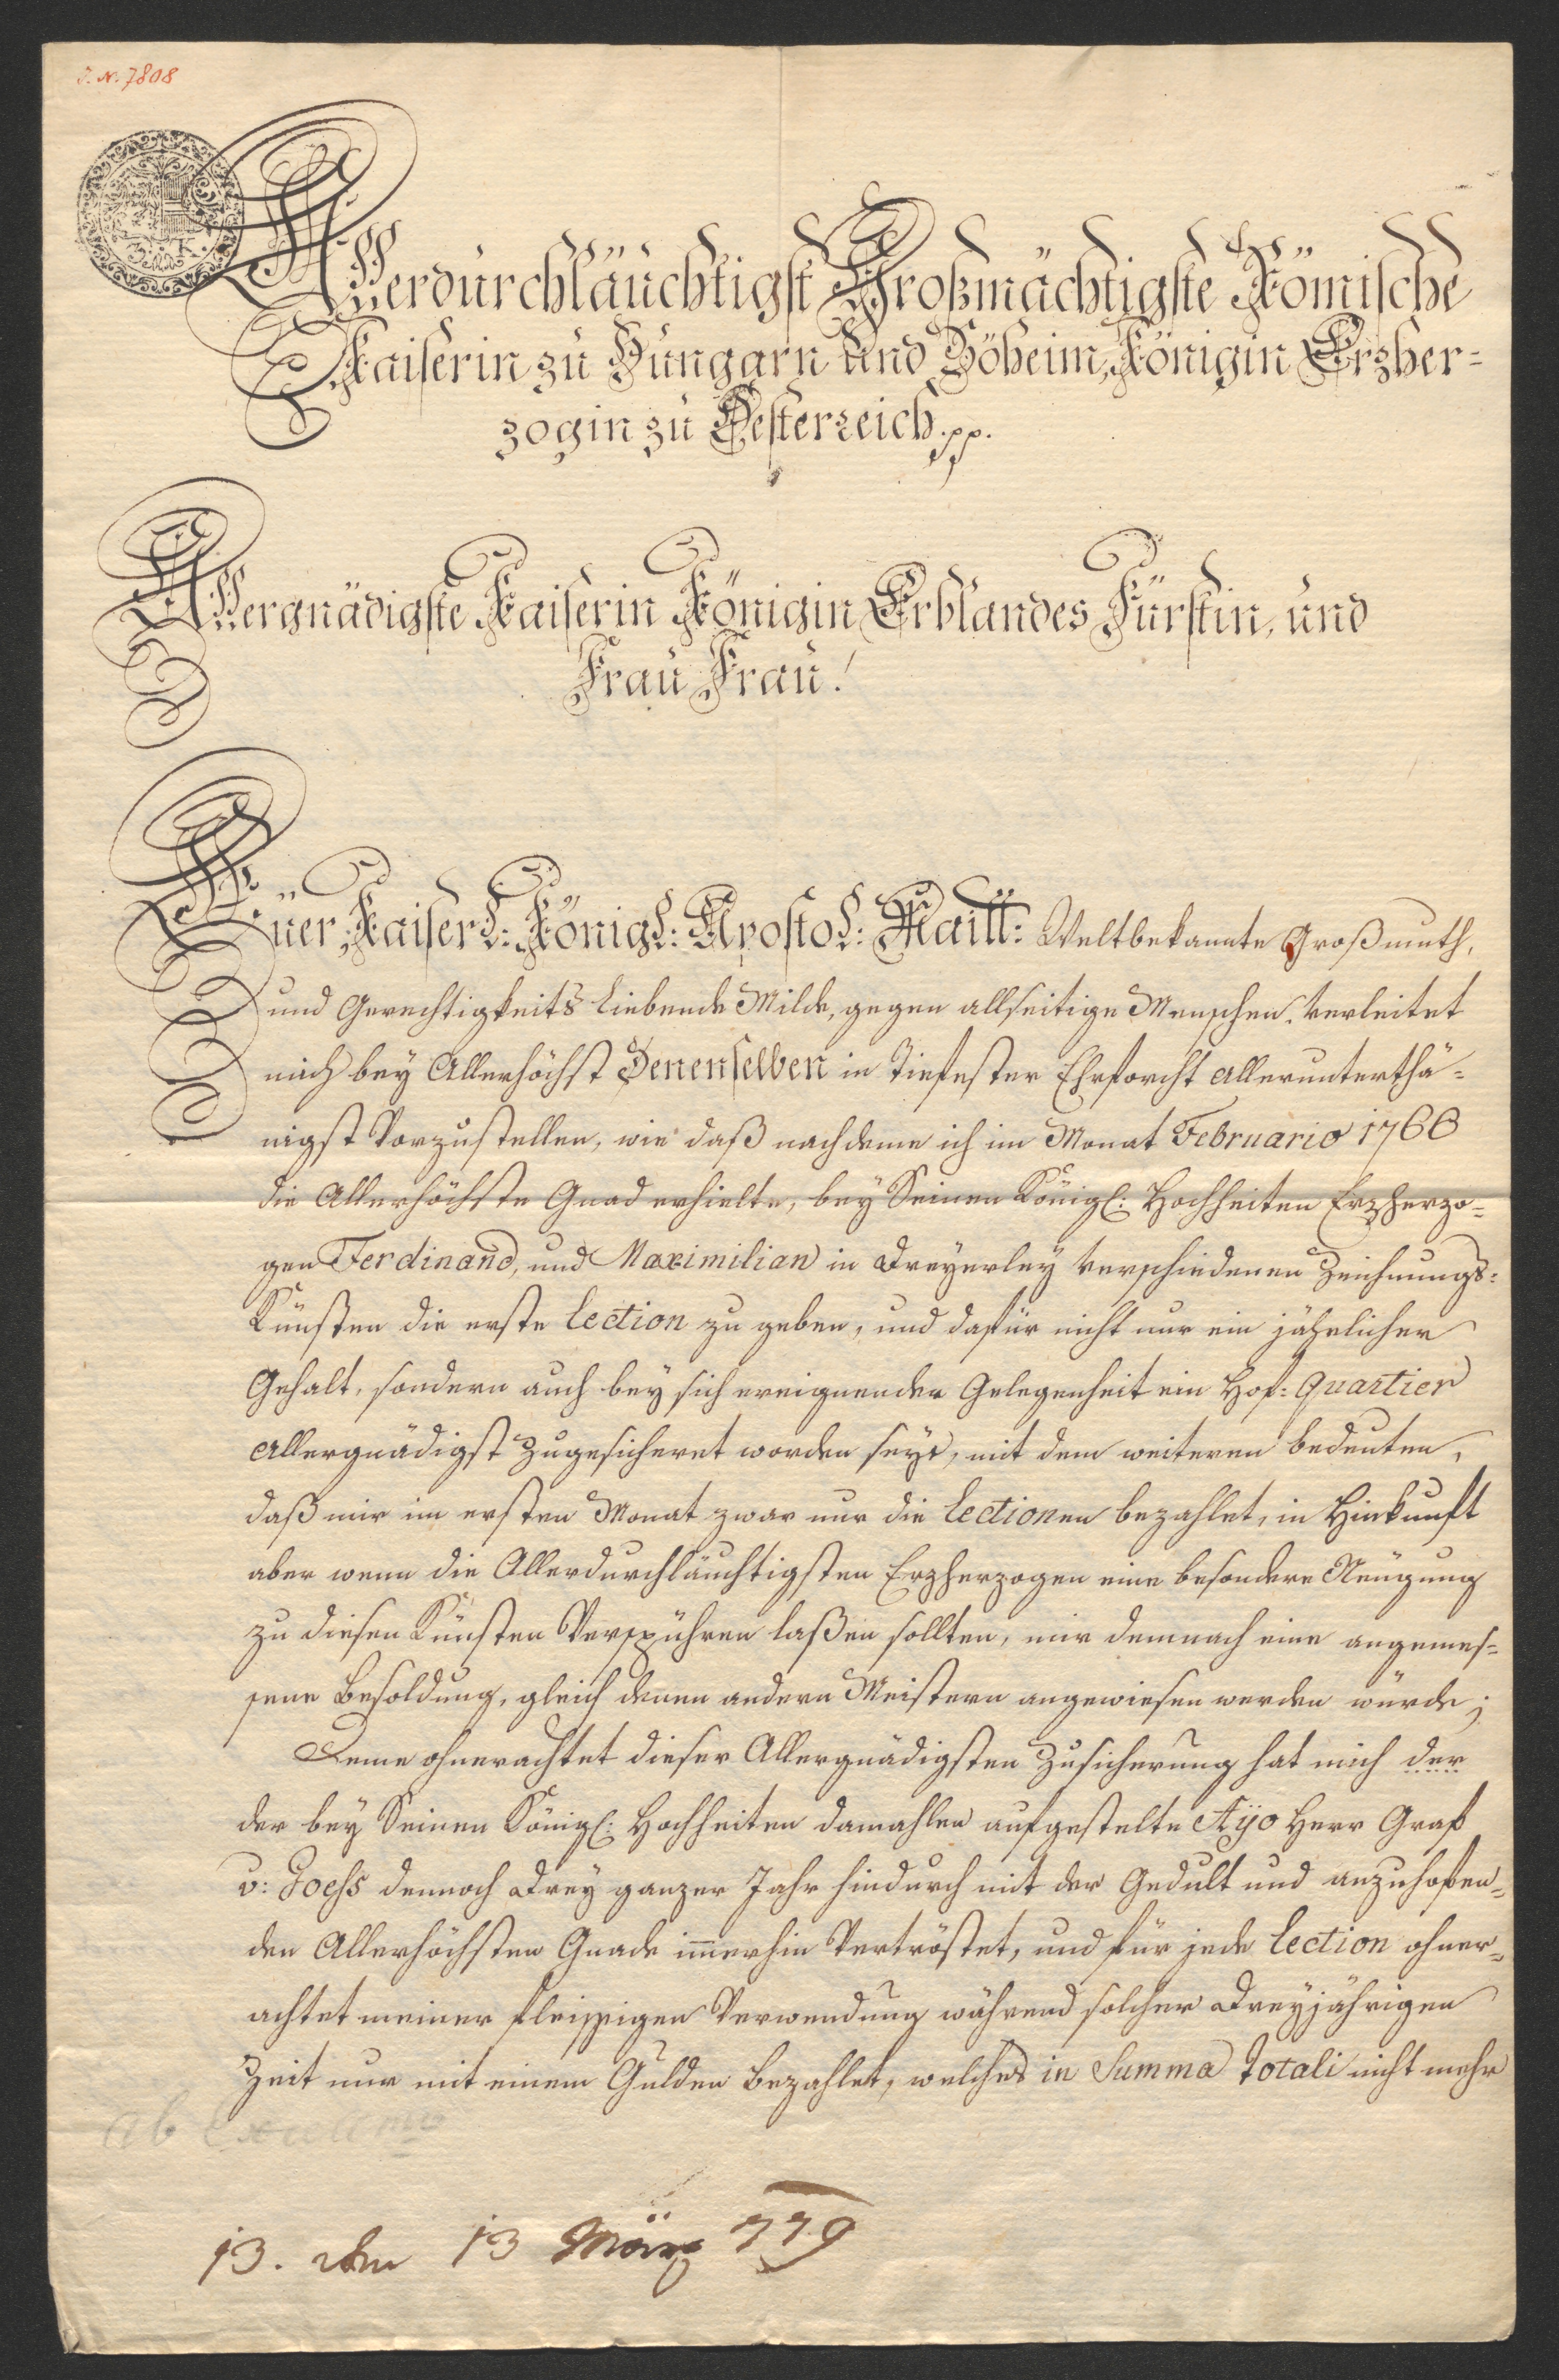 J. N. 7808
3. K.
Allerdurchläuchtigst Großmächtigste Römische
Kaiserin zu Hungarn und Böheim, Königin Erzher-
zogin zu Oesterreich pp.
Allergnädigste Kaiserin Königin Erblandes Fürstin, und
Frau Frau!
Euer Kaiserl: Königl: Apostol: Maitt: Weltbekannte Großmuth,
und Gerechtigkeits Liebende Milde, gegen allseitige Menschen, verleitet
mich bey Allerhöchst Denenselben in tiefester Ehrforcht allerunterthä-
nigst Vorzustellen, wie daß nachdeme ich im Monat Februario 1766
die Allerhöchste Gnad erhielte, bey Seinen Königl: Hochheiten Erzherzo-
gen Ferdinand, und Maximilian in dreyerley verschiedenen Zeichnungs-
Künsten die erste Lection zu geben, und dafür nicht nur ein jährlicher
Gehalt, sondern auch bey sich ereignender Gelegenheit ein Hof: Quartier
allergnädigst zugesicheret worden seye, mit dem weiteren bedeuten,
daß mir im ersten Monat zwar nur die Lectionen bezahlet, in Hinkunft
aber wenn die Allerdurchläuchtigsten Erzherzogen eine besondere Neugung
zu diesen Künsten Verspühren laßen sollten, mir demnach eine angemes-
sene Besoldung, gleich denen andern Meistern angewiesen werden würde;
Deme ohnerachtet dieser Allergnädigsten Zusicherung hat mich der
der bey Seinen Königl: Hochheiten damahlen aufgestelte Ayo Herr Graf
v: Goëss dennoch drey ganzer Jahr hindurch mit der Gedult und anzuhofen-
den Allerhöchsten Gnade immerhin Vertröstet, und für jede Lection ohner-
achtet meiner fleissigen Verwendung während solcher dreyjährigen
Zeit nur mit einem Gulden bezahlet, welches in Summa totali nicht mehr
13. den 13 März 779